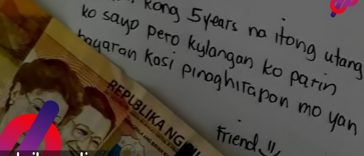 kong 5 years na itong utang
ko sayo pero kylangan ko parin
bayaran kasi pinaghirapan mo yan
Friend
REPUBLIKA NG